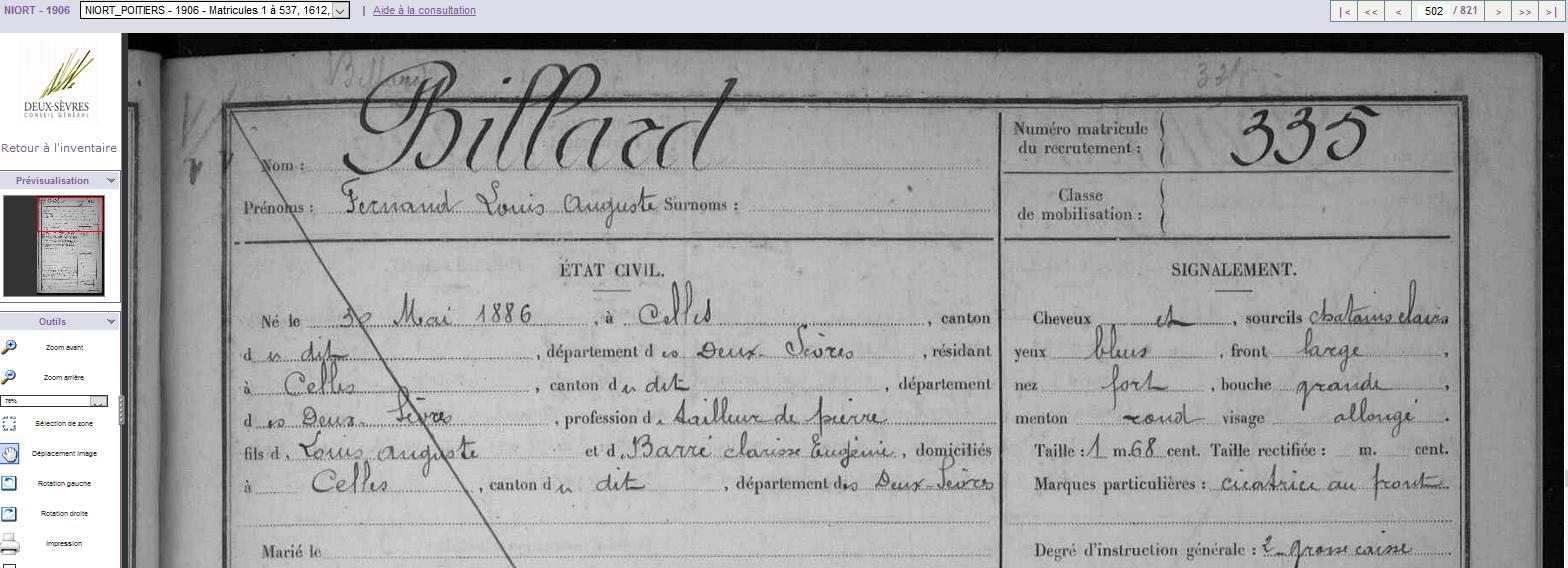 NIORT - 1906
NIORT_POITIERS - 1906 - Matricules 1 à 537, 1612,
| Aide à la consultation
|< << < 502 / 821 > >> >|
DEUX-SÈVRES
CONSEIL GÉNÉRAL
Retour à l'inventaire
Prévisualisation
Outils
Zoom avant
Zoom arrière
76%
Sélection de zone
Déplacement image
Rotation gauche
Rotation droite
Impression
Nom : Billard
Prénoms : Fernand Louis Auguste Surnoms :
Numéro matricule
du recrutement : 335
Classe
de mobilisation :
ÉTAT CIVIL.
Né le 30 Mai 1886, à Celles, canton
du dit, département des Deux-Sèvres, résidant
à Celles, canton du dit, département
des Deux-Sèvres, profession d. tailleur de pierre
fils d. Louis Auguste et d. Barré clarisse Eugénie, domiciliés
à Celles, canton du dit, département des Deux-Sèvres
Marié le
SIGNALEMENT.
Cheveux et, sourcils chatains clairs
yeux bleus, front large,
nez fort, bouche grande,
menton rond visage allongé.
Taille : 1 m. 68 cent. Taille rectifiée : m. cent.
Marques particulières : cicatrice au front.
Degré d'instruction générale : 2 grosse caisse